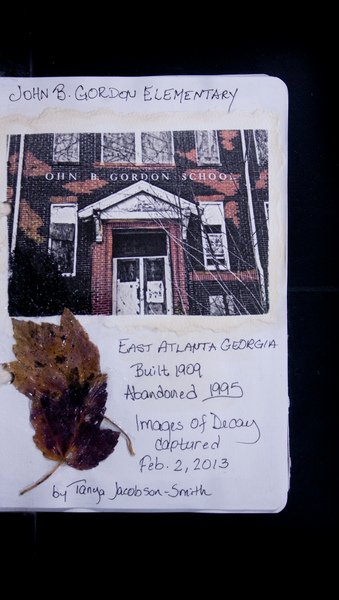 JOHN B. GORDON ELEMENTARY
OHN B GORDON SCHOOL
EAST ATLANTA GEORGIA
Built 1909
Abandoned 1995
Images of Decay
captured
Feb. 2, 2013
by Tanya Jacobson-Smith